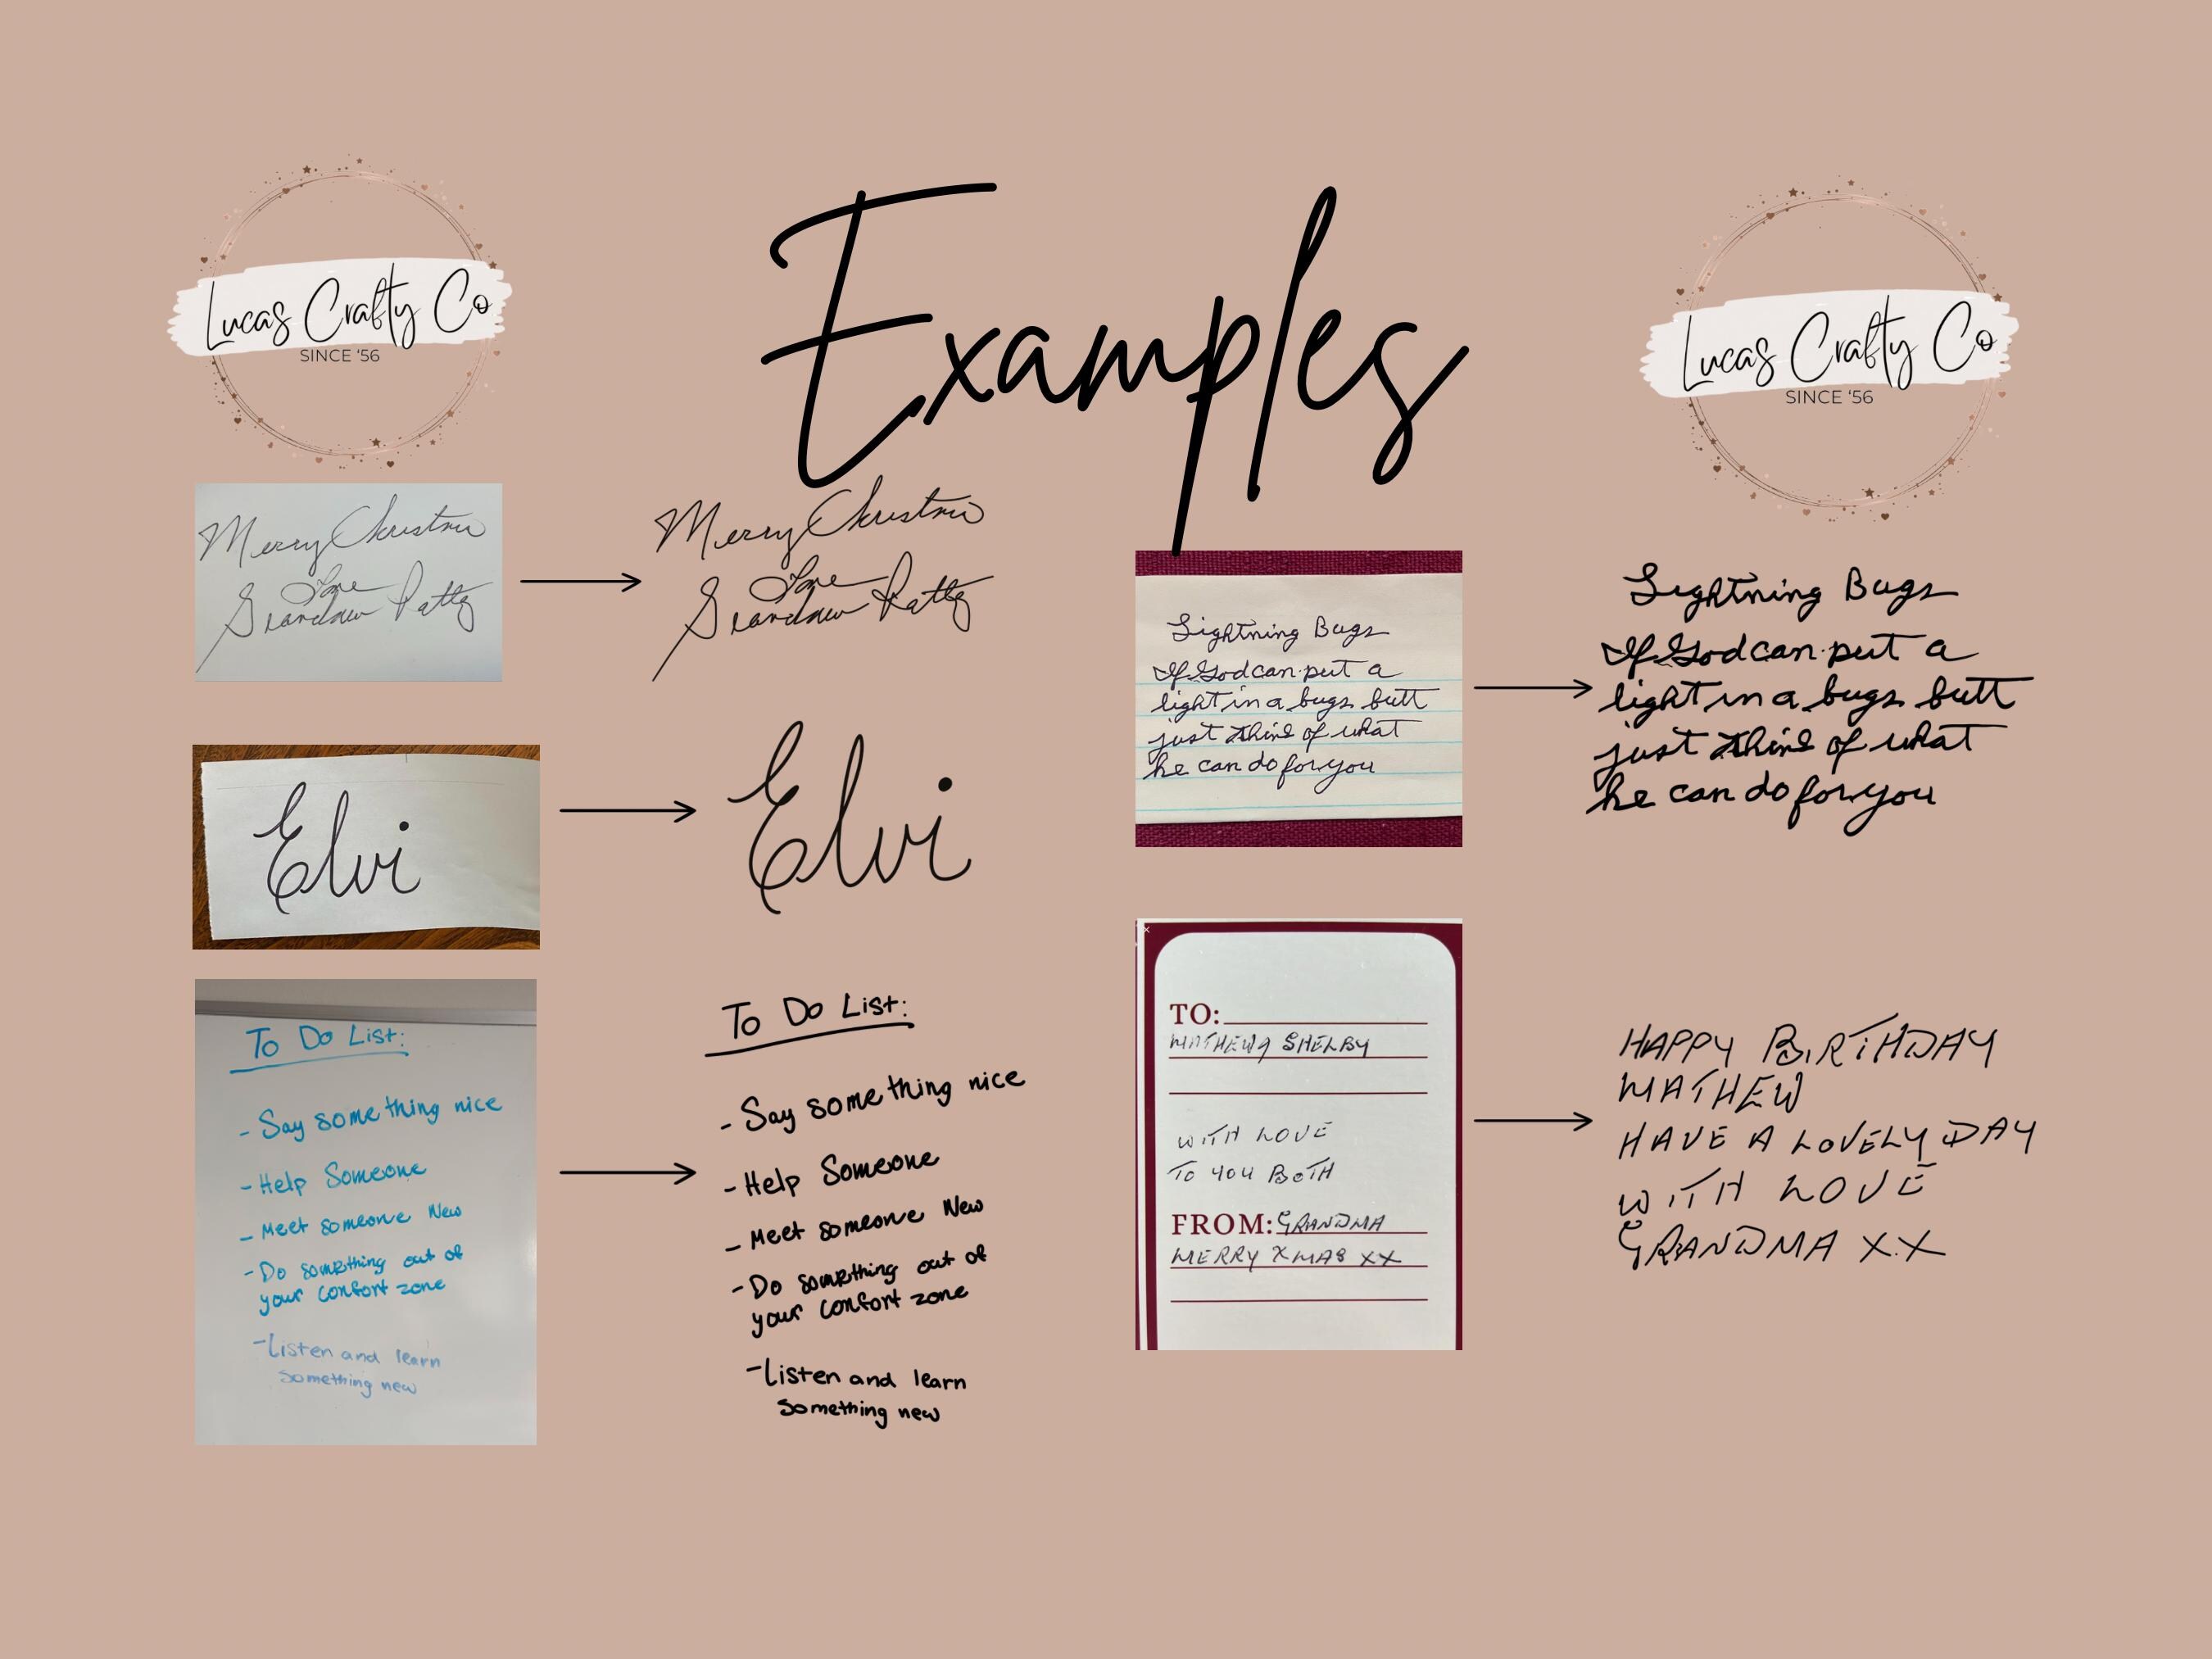 Lucas Crafty Co
SINCE '56
Examples
Lucas Crafty Co
SINCE '56
Merry Christmas
Love
Grandma Patty
Merry Christmas
Love
Grandma Patty
Elvi
Elvi
To Do List:
- Say something nice
- Help Someone
- Meet someone New
- Do something out of
your comfort zone
- Listen and learn
something new
To Do List:
- Say something nice
- Help Someone
- Meet someone New
- Do something out of
your comfort zone
- Listen and learn
something new
Lightning Bugs
If God can put a
light in a bugs butt
just think of what
he can do for you
Lightning Bugs
If God can put a
light in a bugs butt
just think of what
he can do for you
TO:
MATHEW & SHELBY
WITH LOVE
TO YOU BOTH
FROM: GRANDMA
MERRY XMAS XX
HAPPY BIRTHDAY
MATHEW
HAVE A LOVELY DAY
WITH LOVE
GRANDMA X.X